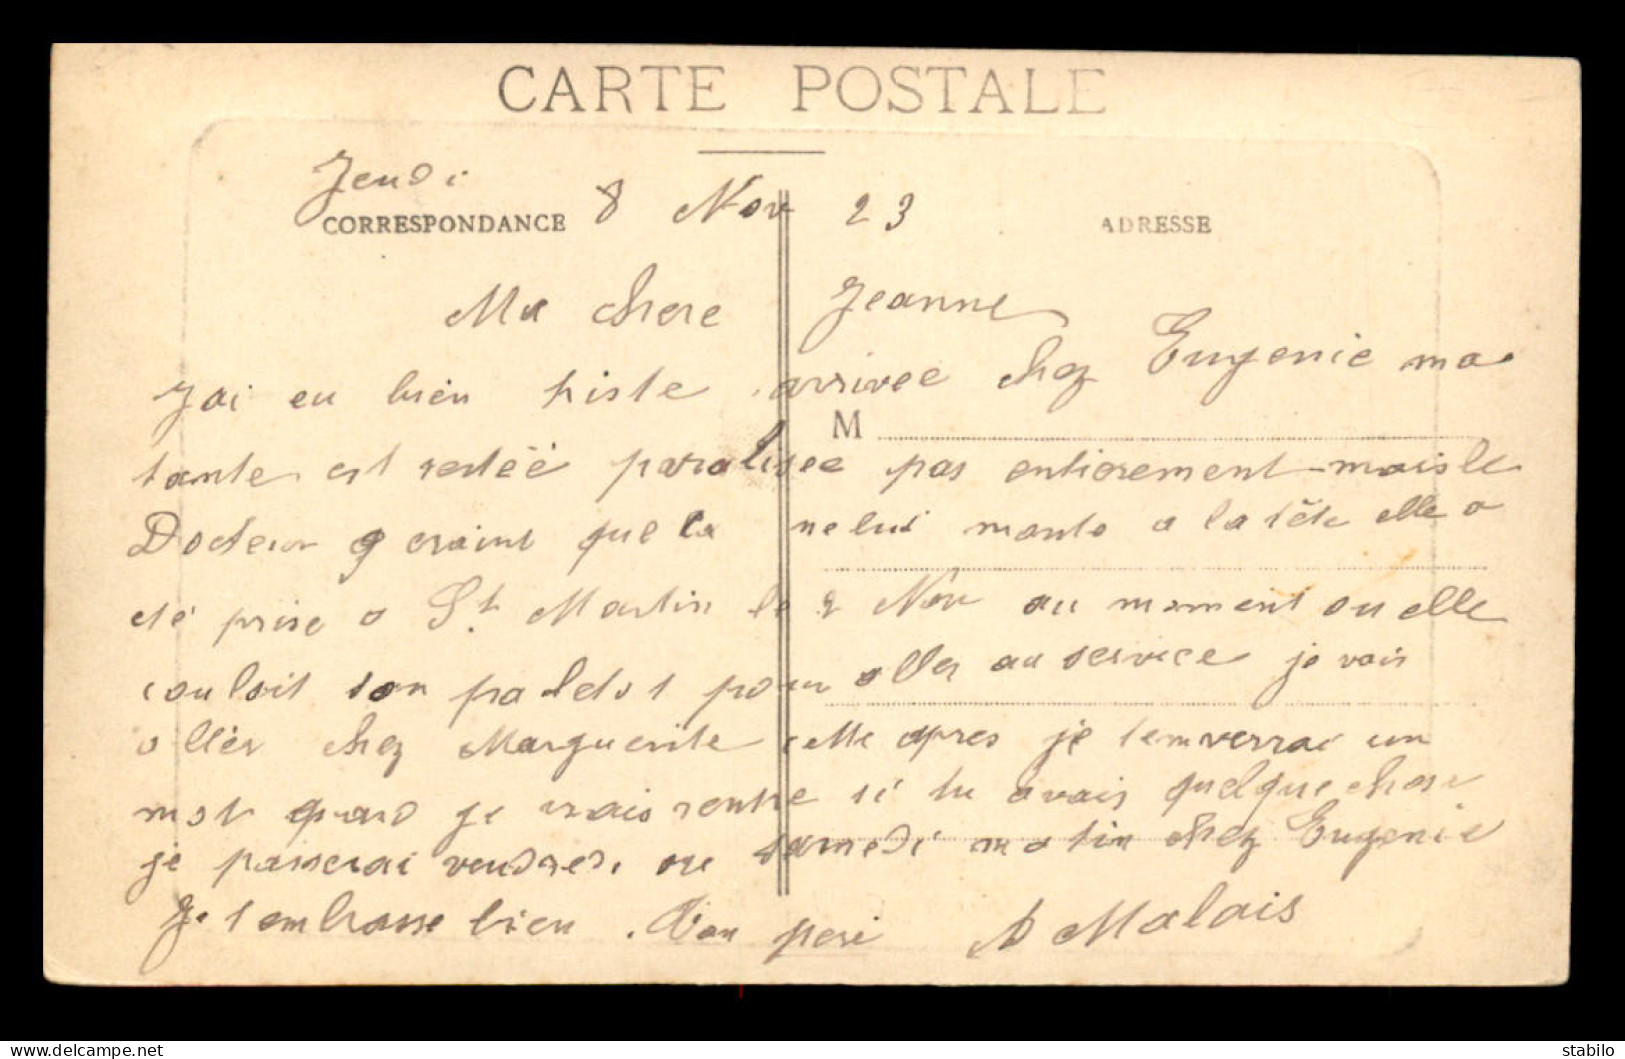 CARTE POSTALE
Jeudi
CORRESPONDANCE 8 Nov 23 ADRESSE
Ma chere Jeanne
Jai eu bien triste arrivee chez Eugenie ma
M
tante est restéé paralisee pas entierement mais le
Docteur craint que la ne lui monte a la tête elle a
eté prise a St Martin le 2 Nov au moment ou elle
vouloit son paletot pour aller au service je vais
aller chez Marguerite cette apres je temverrai un
mot quand je vrais rentre si tu avais quelque chose
je passerai vendredi ou samedi matin chez Eugenie
Je tembrasse bien. Ton pere A Malais
stabilo